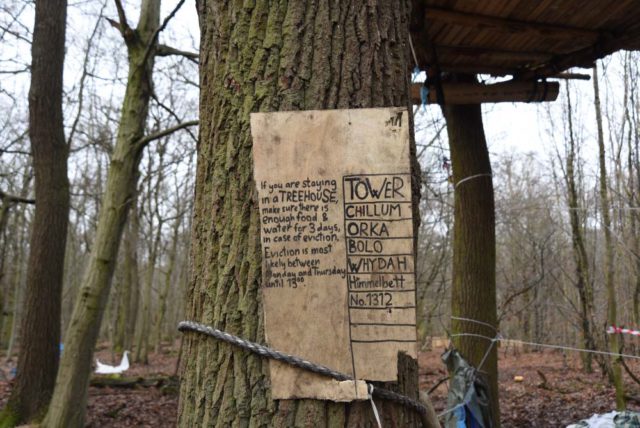 If you are staying
in a TREEHOUSE,
make sure there is
enough food &
water for 3 days,
in case of eviction.
Eviction is most
likely between
Monday and Thursday
until 13⁰⁰.
TOWER
CHILLUM
ORKA
BOLO
WHYDAH
Himmelbett
No. 1312